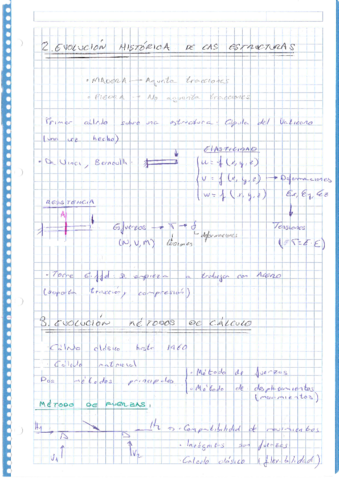 2. EVOLUCIÓN HISTÓRICA DE LAS ESTRUCTURAS
• MADERA → Aguanta tracciones
• PIEDRA → No aguanta tracciones
Primer cálculo sobre una estructura: Cúpula del Vaticano
(una vez hecha)
ELASTICIDAD
• Da Vinci, Bernoulli
u = f (x, y, z)
v = f (x, y, z) → Deformaciones
w = f (x, y, z) Ex, Ey, Ez
RESISTENCIA
A
Esfuerzos → σ → d
(N, V, M)
Tensiones
• Torre Eiffel Se empieza a trabajar con ACERO
(soporta tracción, compresión)
3. EVOLUCIÓN MÉTODOS DE CÁLCULO
Cálculo clásico hasta 1960
Cálculo matricial
Dos métodos principales
• Método de fuerzas
• Método de desplazamientos
(movimientos)
MÉTODO DE FUERZAS:
H1 H2 • Compatibilidad de movimientos
V1 V2 • Incógnitas son fuerzas
Cálculo clásico (flexibilidad)